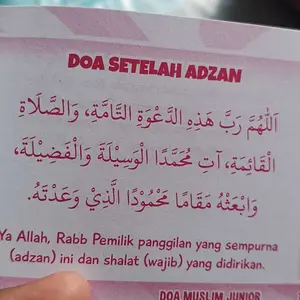 DOA SETELAH ADZAN
اَللّٰهُمَّ رَبَّ هَذِهِ الدَّعْوَةِ التَّامَّةِ، وَالصَّلَاةِ
الْقَائِمَةِ، آتِ مُحَمَّدًا الْوَسِيْلَةَ وَالْفَضِيْلَةَ،
وَابْعَثْهُ مَقَامًا مَحْمُوْدًا الَّذِيْ وَعَدْتَهُ.
Ya Allah, Rabb Pemilik panggilan yang sempurna
(adzan) ini dan shalat (wajib) yang didirikan.
DOA MUSLIM JUNIOR